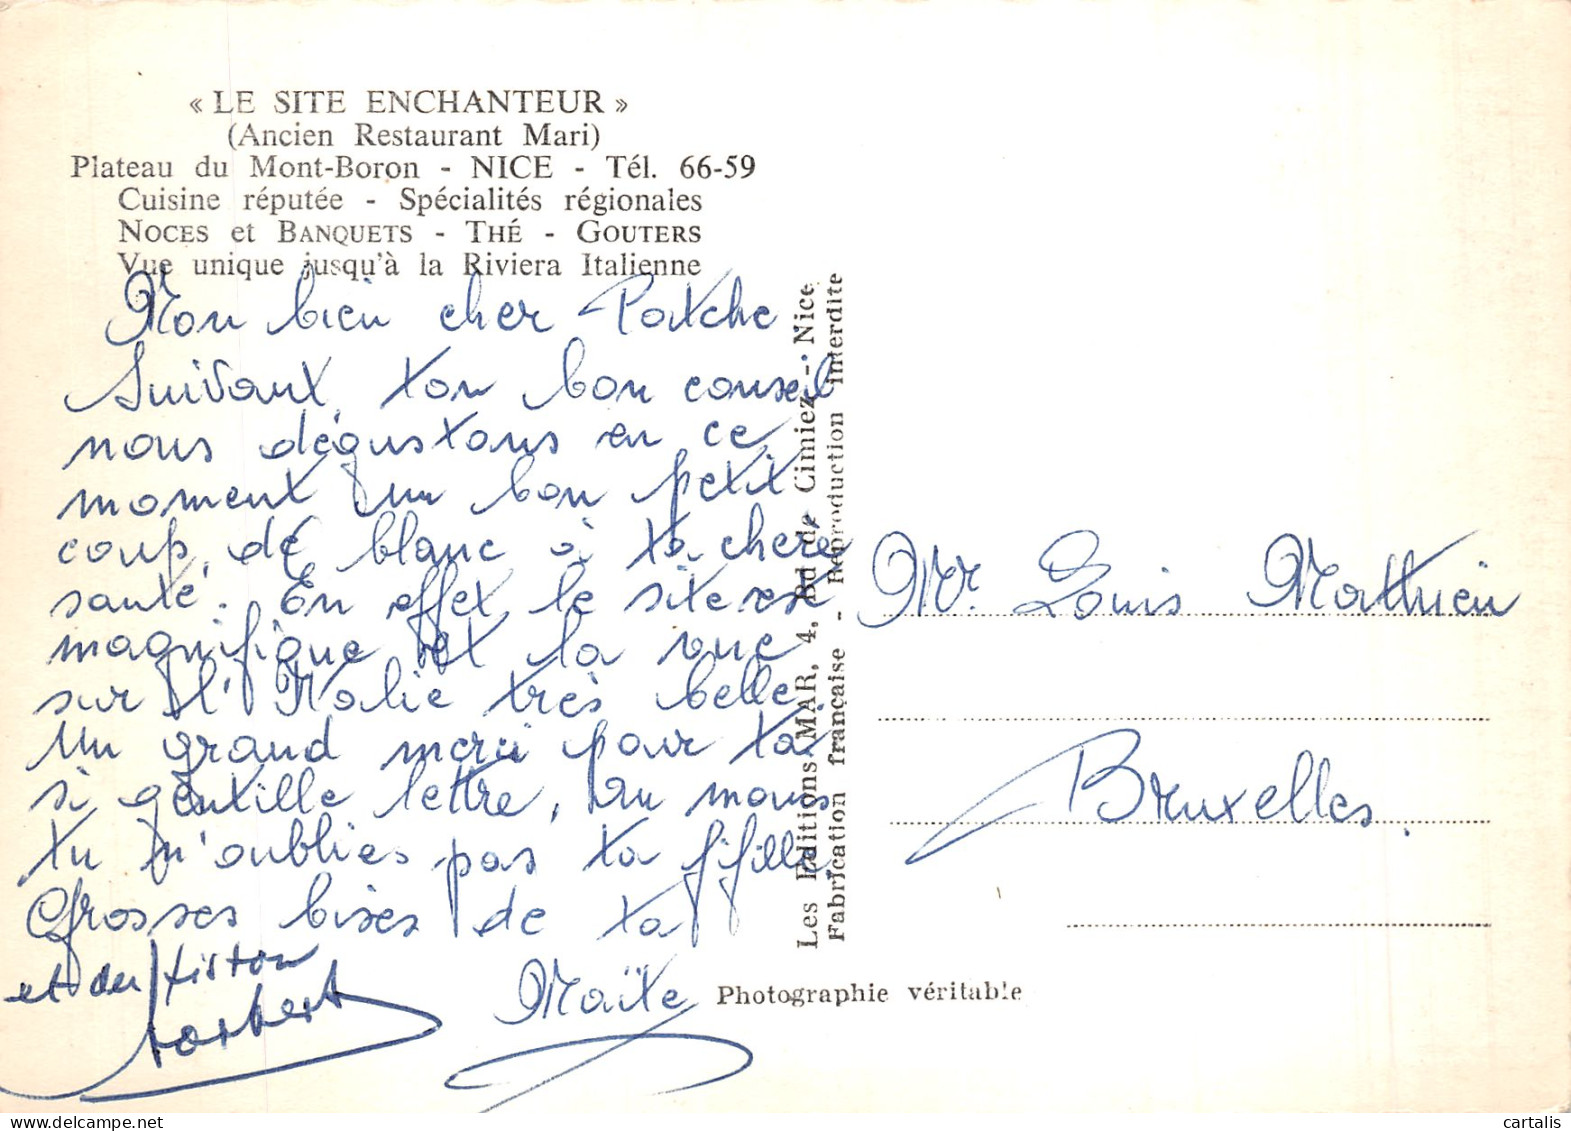 « LE SITE ENCHANTEUR »
(Ancien Restaurant Mari)
Plateau du Mont-Boron - NICE - Tél. 66-59
Cuisine réputée - Spécialités régionales
NOCES et BANQUETS - THÉ - GOUTERS
Vue unique jusqu'à la Riviera Italienne
Mon bien cher Patche
Suivant ton bon conseil
nous dégustons en ce
moment un bon petit
coup de blanc à ta chère
santé. En effet le site est
magnifique et la vue
sur l'Italie très belle
Un grand merci pour ta
si gentille lettre, au moins
tu n'oublies pas ta fifille.
Grosses bises de ta
et du fiston
Maïte
Les Editions MAR, 4, Bd de Cimiez - Nice
Fabrication française - Reproduction interdite
Mr. Louis Mathieu
Bruxelles.
Photographie véritable
eustm@wanadoo.fr
cartalis